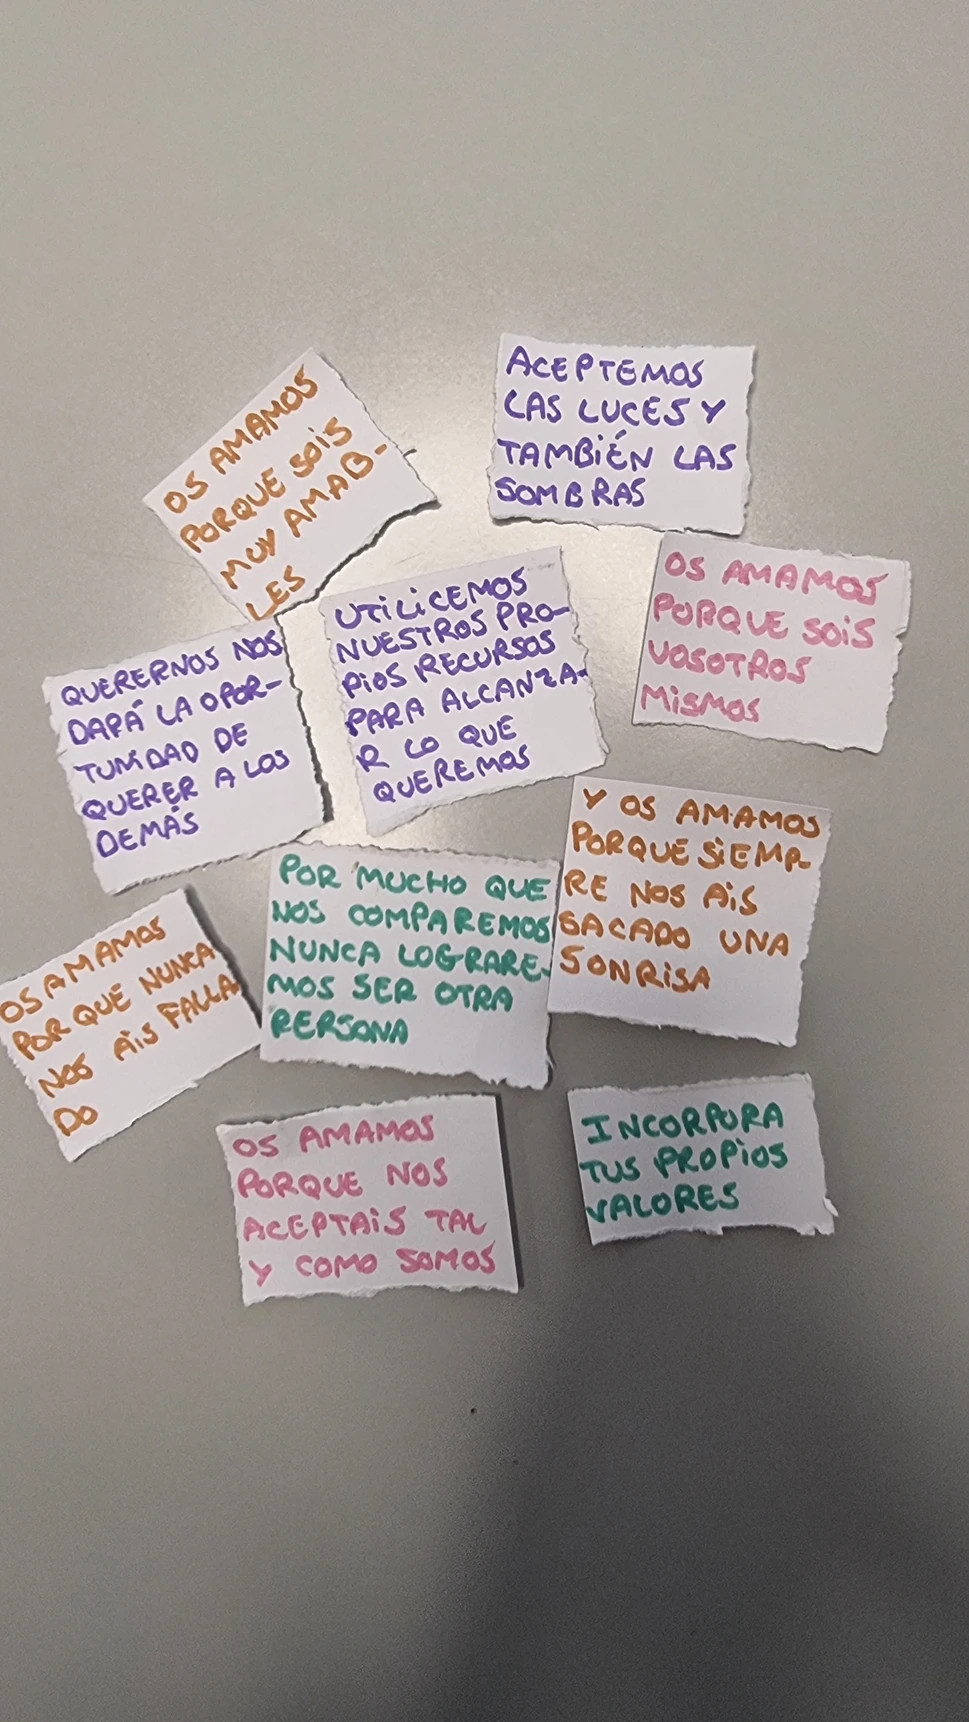 OS AMAMOS
PORQUE SOIS
MUY AMAB-
LES
ACEPTEMOS
LAS LUCES Y
TAMBIÉN LAS
SOMBRAS
QUERERNOS NOS
DARÁ LA OPOR-
TUNIDAD DE
QUERER A LOS
DEMÁS
UTILICEMOS
NUESTROS PRO-
PIOS RECURSOS
PARA ALCANZA-
R LO QUE
QUEREMOS
OS AMAMOS
PORQUE SOIS
VOSOTROS
MISMOS
OS AMAMOS
PORQUE NUNCA
NOS AIS FALLA
DO
POR MUCHO QUE
NOS COMPAREMOS
NUNCA LOGRARE-
MOS SER OTRA
PERSONA
Y OS AMAMOS
PORQUE SIEMP-
RE NOS AIS
SACADO UNA
SONRISA
OS AMAMOS
PORQUE NOS
ACEPTAIS TAL
Y COMO SOMOS
INCORPORA
TUS PROPIOS
VALORES